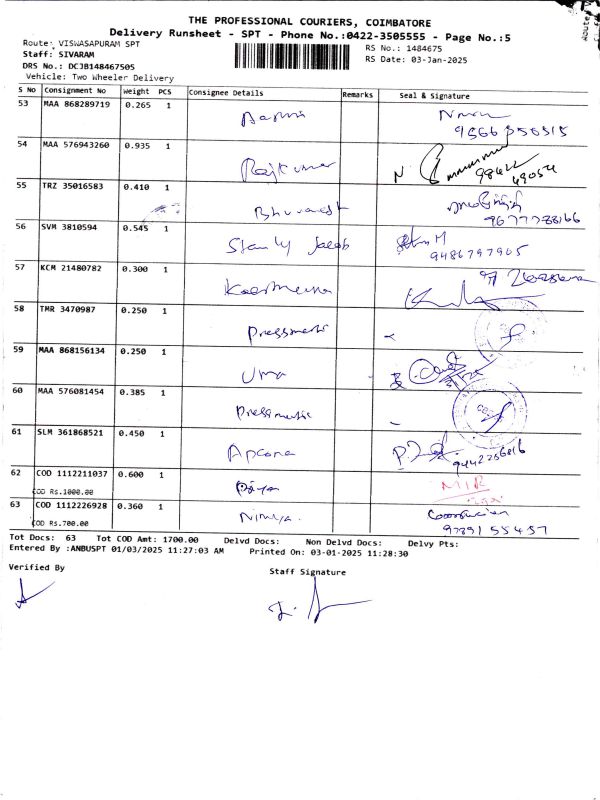 THE PROFESSIONAL COURIERS, COIMBATORE
Delivery Runsheet - SPT - Phone No.:0422-3505555 - Page No.:5
Route: VISWASAPURAM SPT
RS No.: 1484675
Staff: SIVARAM
RS Date: 03-Jan-2025
DRS No.: DCJB148467505
Vehicle: Two Wheeler Delivery
S No Consignment No Weight PCS Consignee Details Remarks Seal & Signature
53 MAA 868289719 0.265 1
54 MAA 576943260 0.935 1 Rajkumar
98422
49054
55 TRZ 35016583 0.410 1
9677788166
56 SVM 3810594 0.545 1 Stanly Jacob
9486797905
57 KCM 21480782 0.300 1
58 TMR 3470987 0.250 1 Pressmatic
59 MAA 868156134 0.250 1 Uma
60 MAA 576081454 0.385 1 Pressmatic
61 SLM 361868521 0.450 1
9442256816
62 COD 1112211037 0.600 1
COD Rs.1000.00
63 COD 1112226928 0.360 1
COD Rs.700.00
9789155457
Tot Docs: 63 Tot COD Amt: 1700.00 Delvd Docs: Non Delvd Docs: Delvy Pts:
Entered By :ANBUSPT 01/03/2025 11:27:03 AM Printed On: 03-01-2025 11:28:30
Verified By
Staff Signature